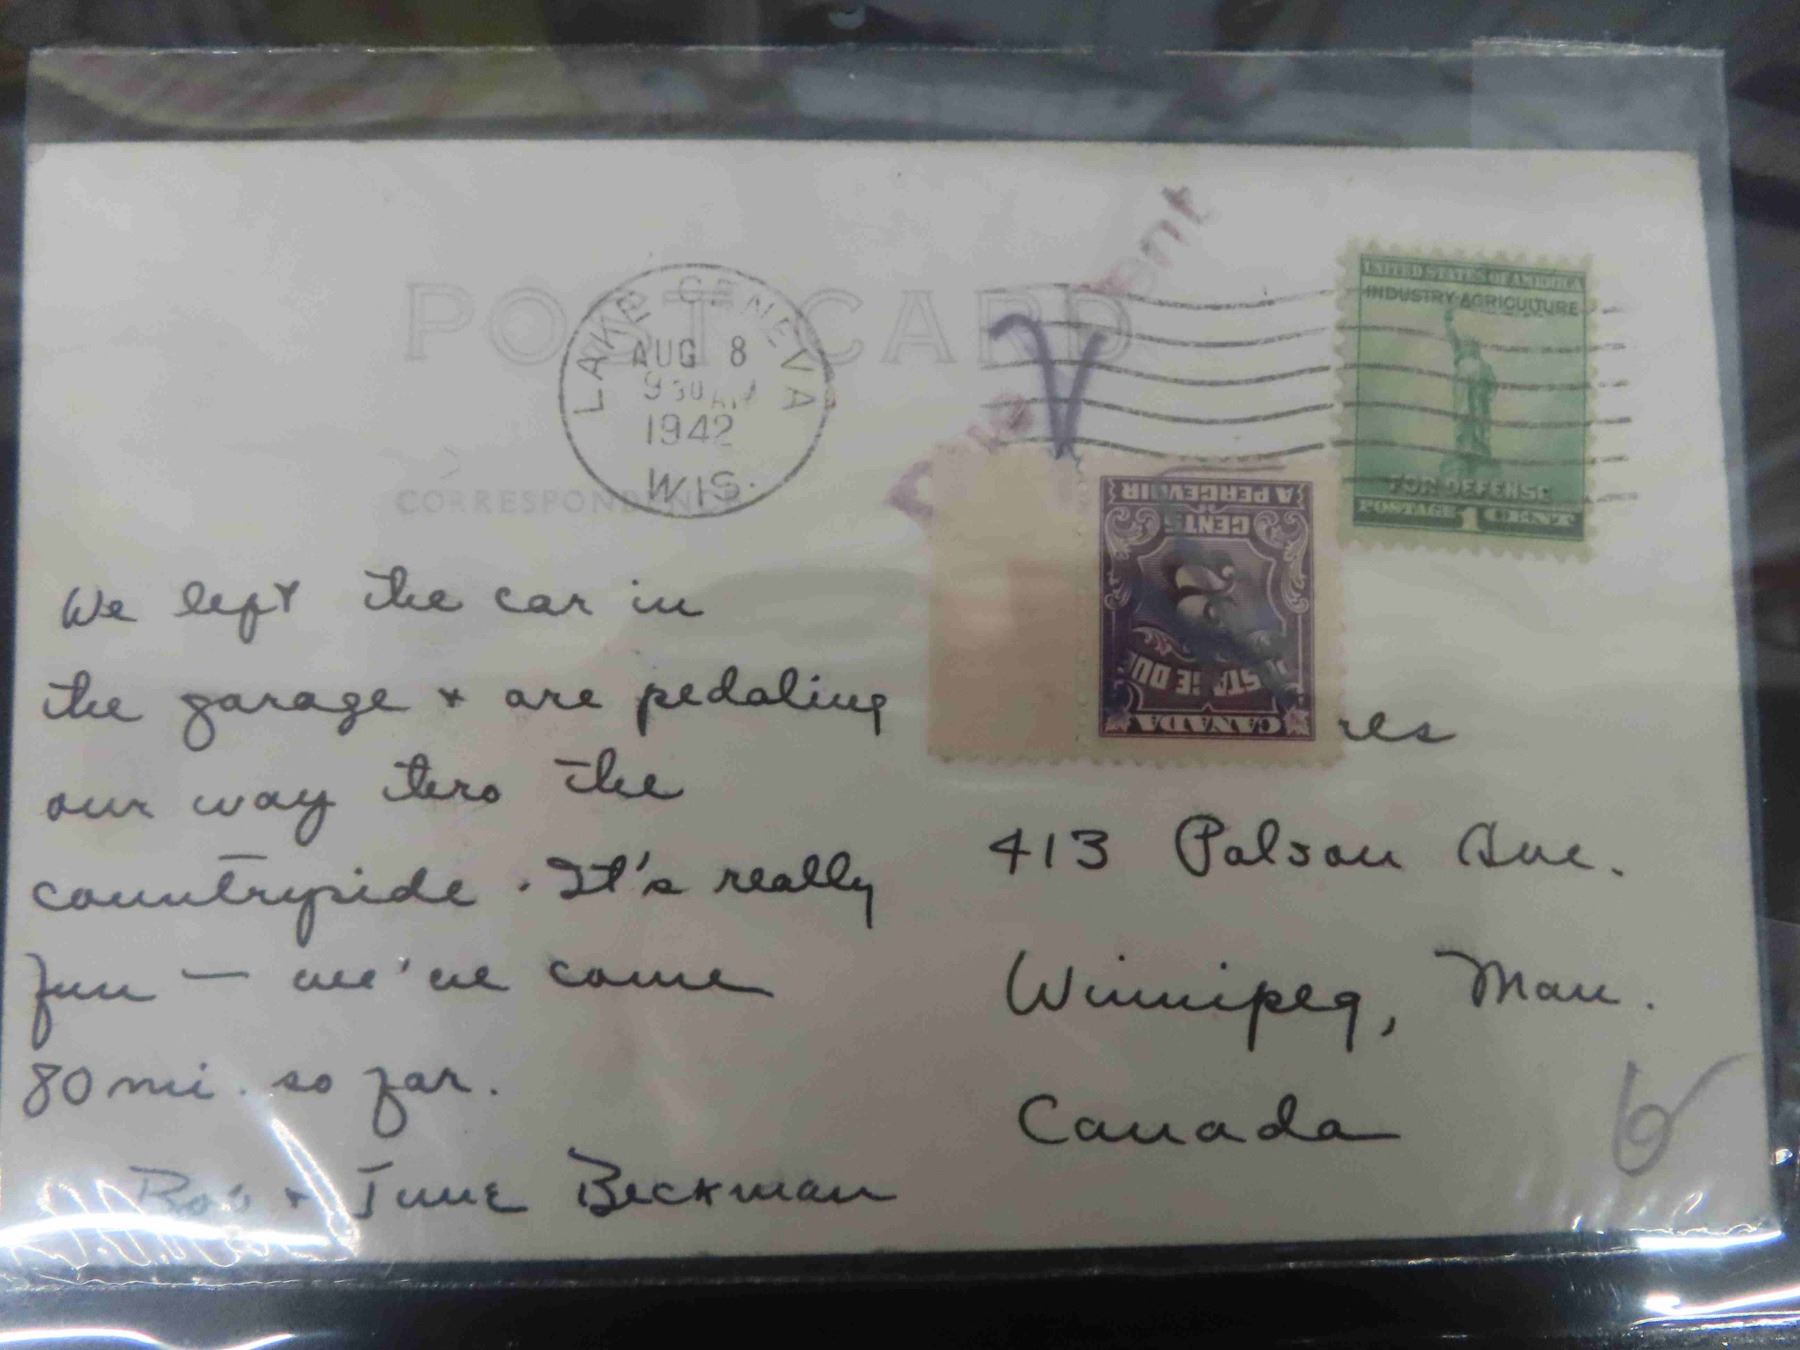 POST CARD
CORRESPONDENCE
LAKE GENEVA
AUG 8
9 30 AM
1942
WIS.
Due
ent
UNITED STATES OF AMERICA
INDUSTRY AGRICULTURE
FOR DEFENSE
POSTAGE 1 CENT
CANADA
POSTAGE DUE
2
CENTS
A PERCEVOIR
We left the car in
the garage + are pedaling
our way thro the
countryside. It's really
fun — we've come
80 mi. so far.
Bob + June Beckman
res
413 Polson Ave.
Winnipeg, Man.
Canada
6